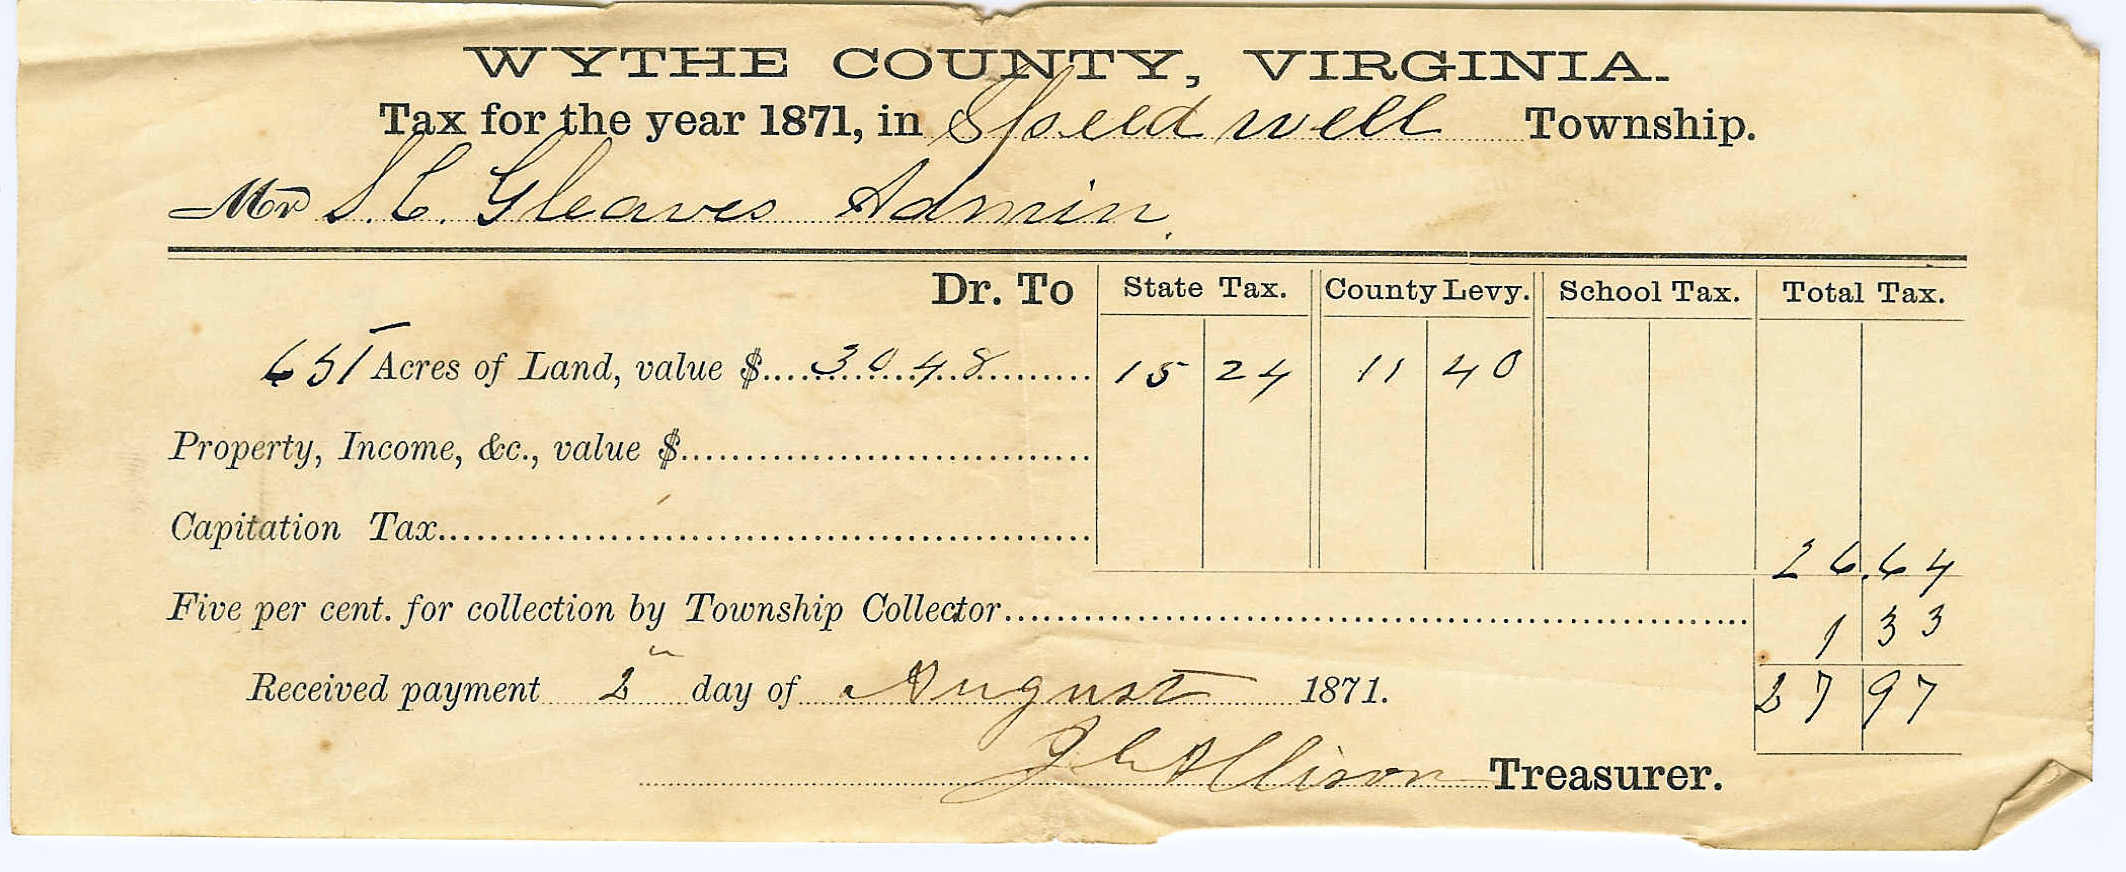 WYTHE COUNTY, VIRGINIA.
Tax for the year 1871, in Speedwell Township.
Mr S. C. Gleaves Admin.
Dr. To State Tax. County Levy. School Tax. Total Tax.
651 Acres of Land, value $ 3048 15 24 11 40
Property, Income, &c., value $
Capitation Tax
26.64
Five per cent. for collection by Township Collector 1 33
Received payment 2" day of August 1871. 27 97
J C Allison Treasurer.